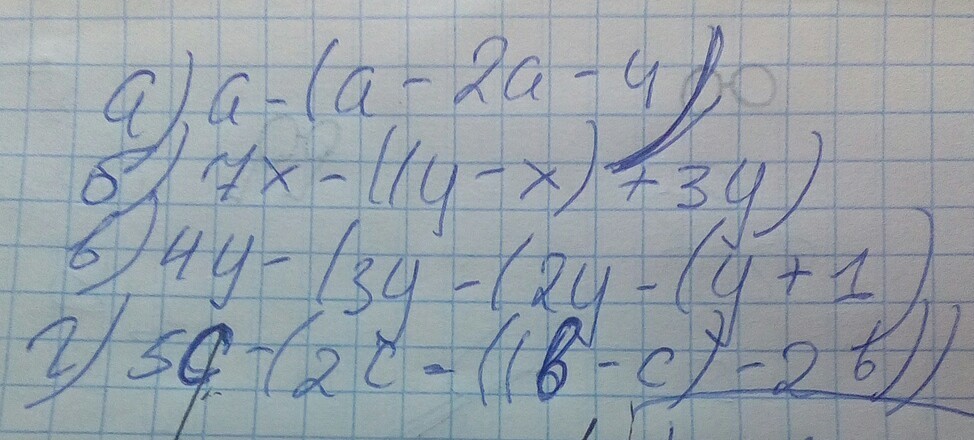 а) a - (a - 2a - 4)
б) 7x - ((y - x) + 3y)
в) 4y - (3y - (2y - (y + 1)
г) 5c - (2c - ((b - c) - 2b))